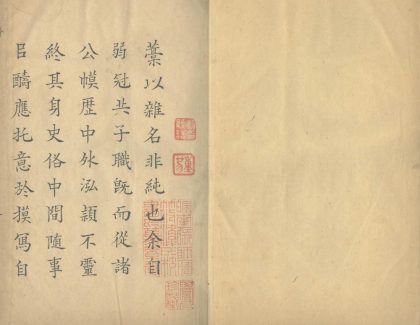 藁以雜名非純也余自
弱冠共子職既而從諸
公幙歴中外泓頴不靈
終其身史俗中間隨事
㠯醻應托意於摸寫自